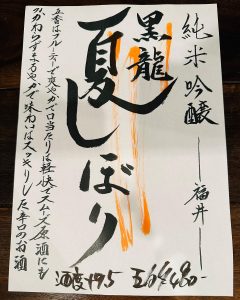 純米吟醸 ── 福井 ──
黒龍
夏しぼり
立香はフルーティーで爽やかで口当たりは軽快でスムーズ原酒にも
かかわらずまろやかで味わいはスッキリした辛口のお酒
酒度+9.5